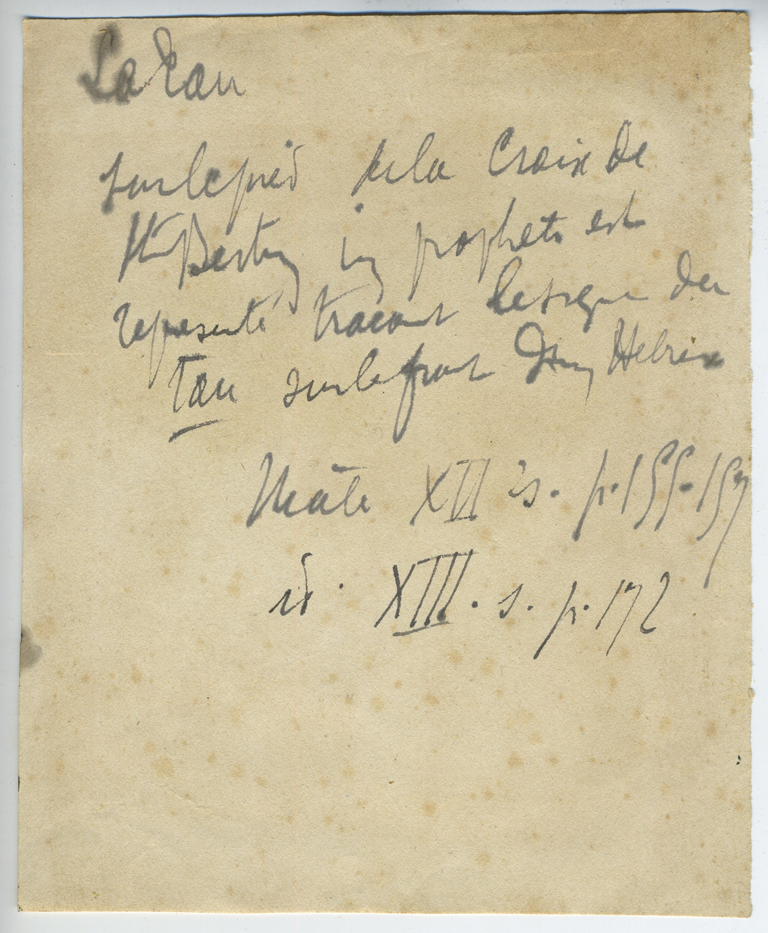 La Tau
sur le pied de la Croix de
St Bertin un prophete est
represente traçant le signe du
Tau sur le front d'un Hebreu
Mâle XII s. p. 155-157
id. XIII. s. p. 172